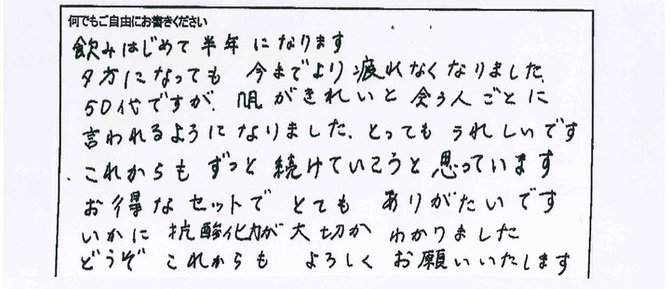 何でもご自由にお書きください
飲みはじめて半年になります
夕方になっても 今までより疲れなくなりました、
50代ですが、肌がきれいと会う人ごとに
言われるようになりました、とっても うれしいです
これからも ずっと続けていこうと思っています
お得なセットで とても ありがたいです
いかに 抗酸化力が大切か わかりました
どうぞ これからも よろしく お願いいたします